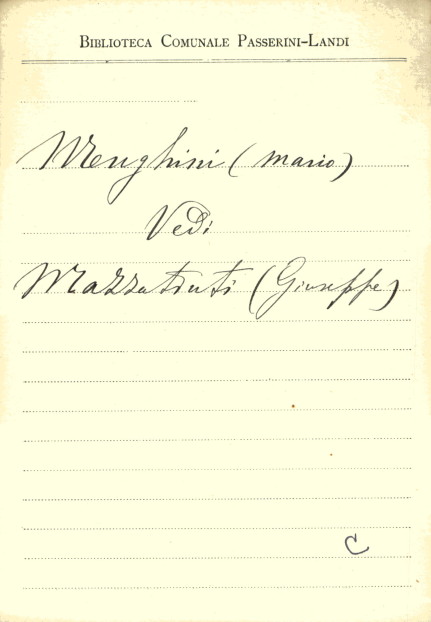 BIBLIOTECA COMUNALE PASSERINI-LANDI
Menghini (Mario)
Vedi
Mazzatinti (Giuseppe)
C